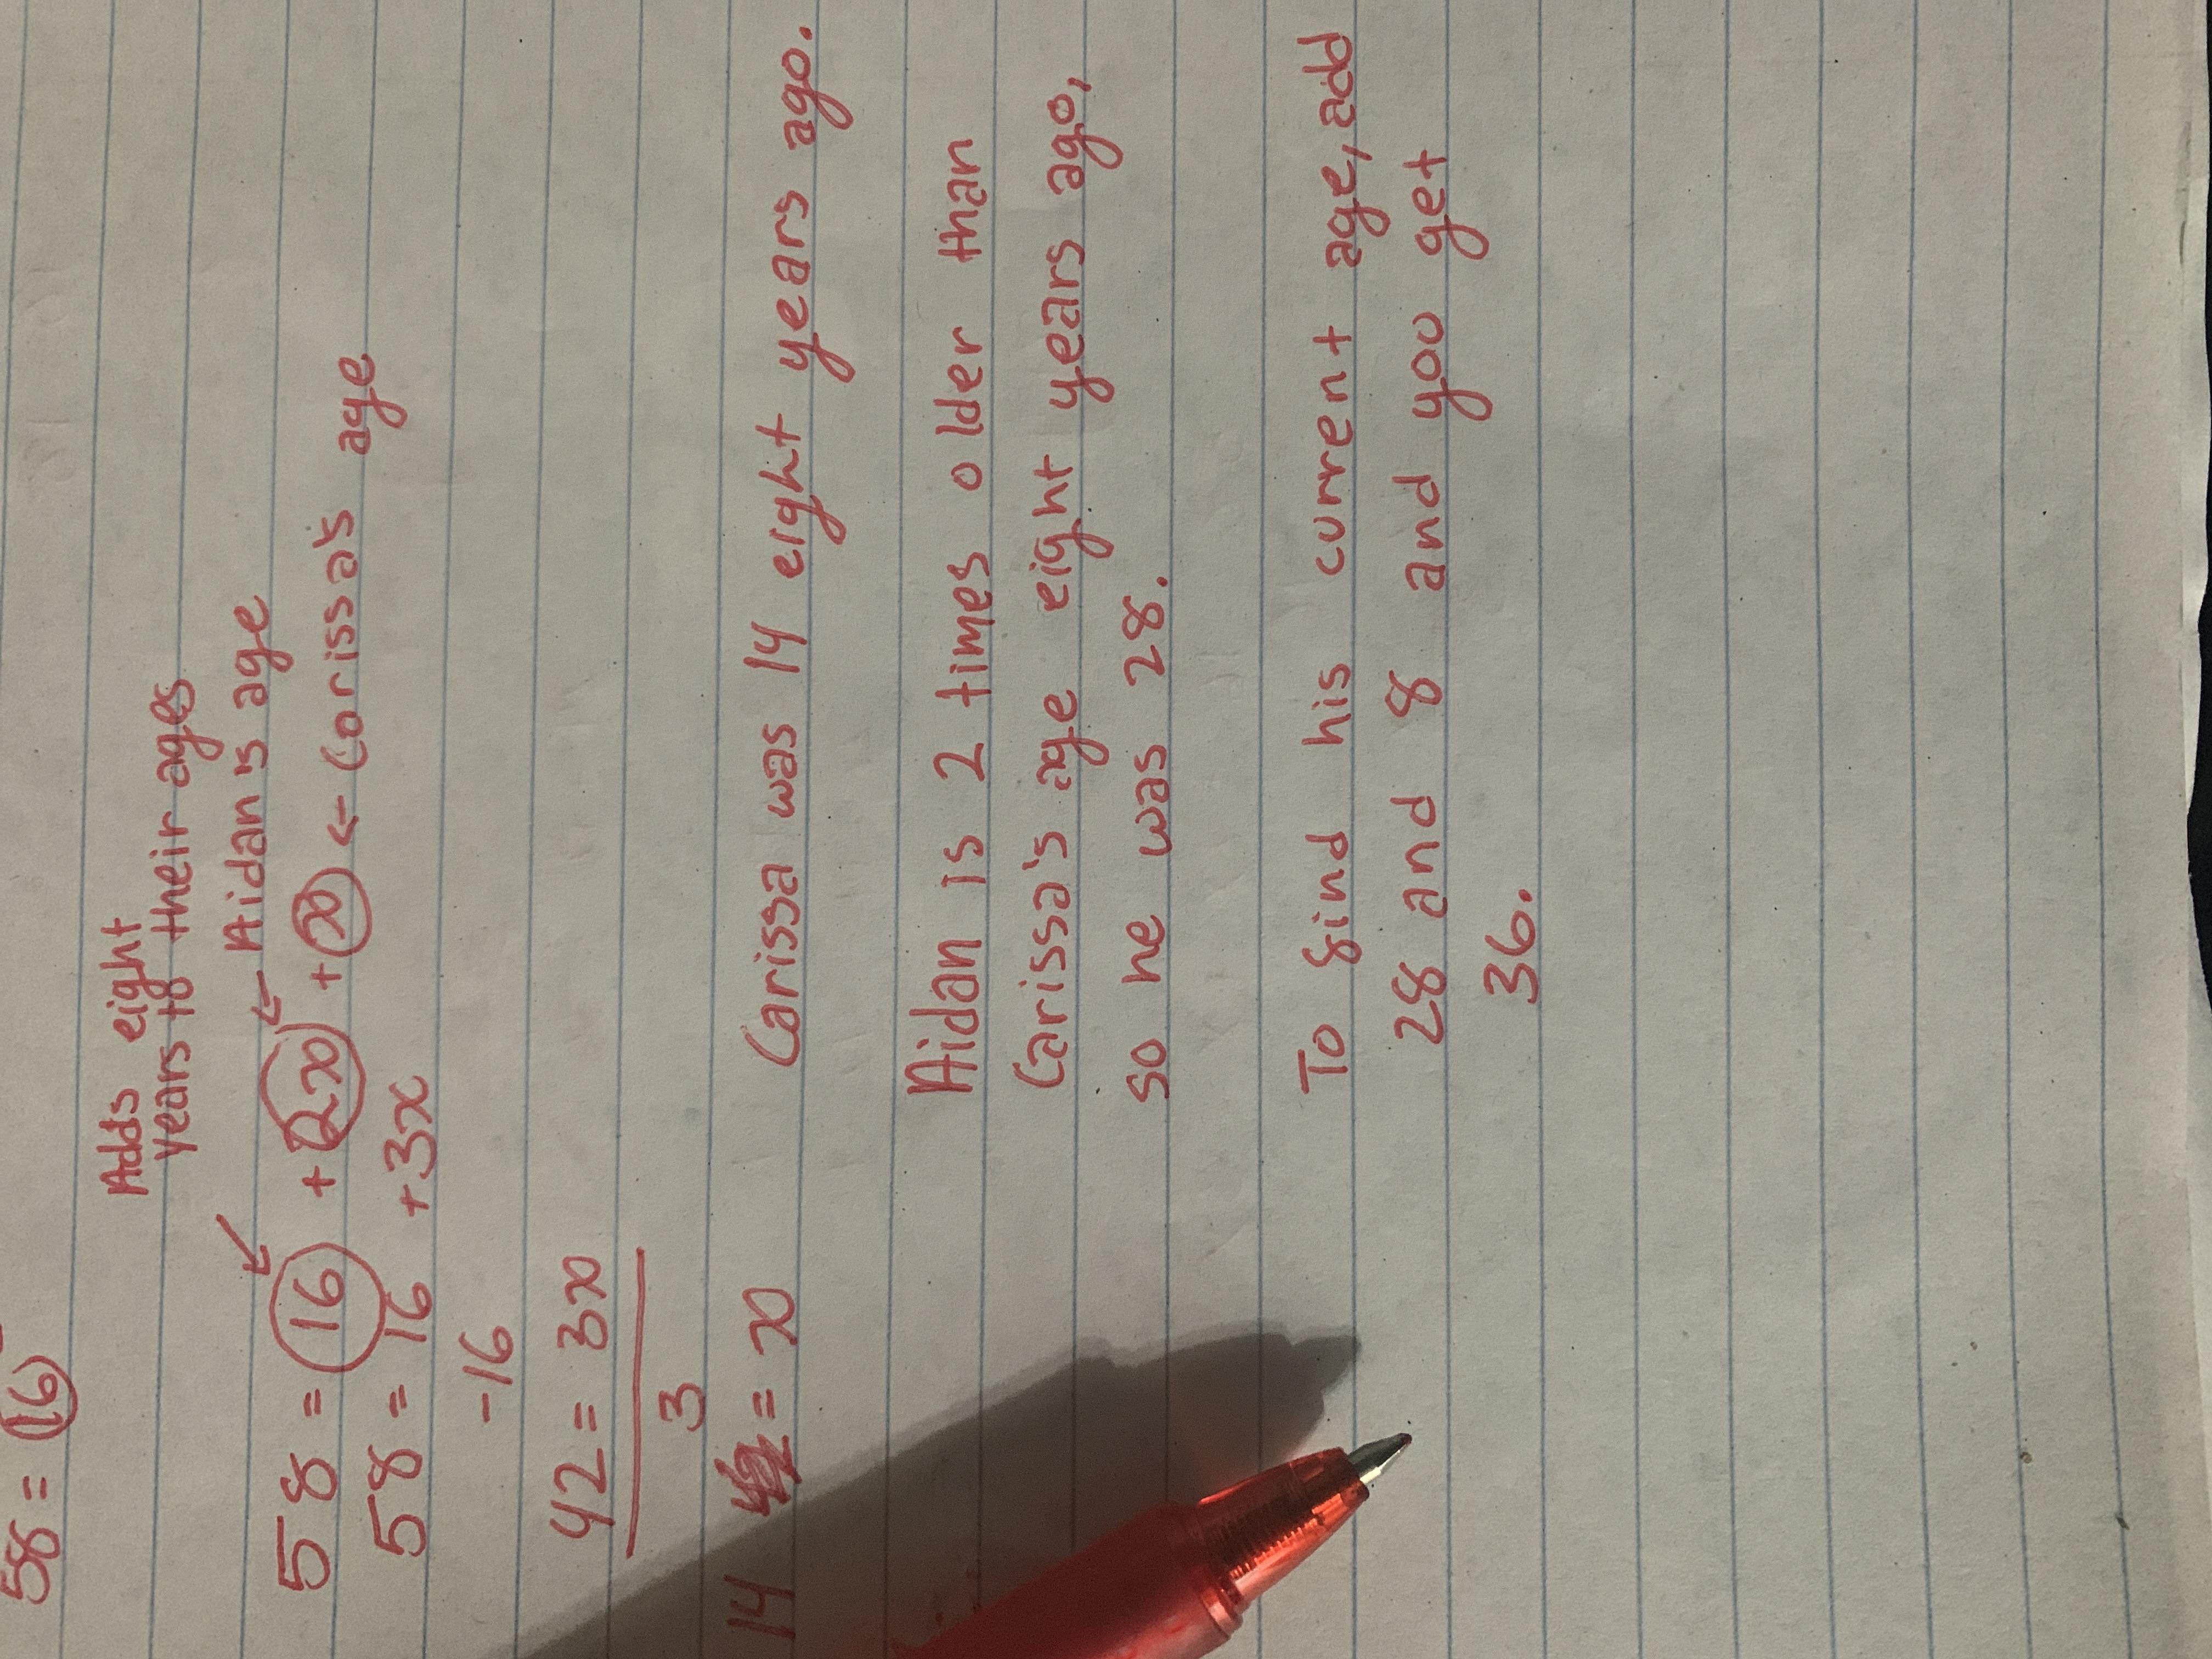 58 = 16
Adds eight
years to their ages
Aidan's age
58 = 16 + 2x + x ← Corissa's age
58 = 16 + 3x
-16
42 = 3x
3
14 = x
Carissa was 14 eight years ago.
Aidan is 2 times older than
Carissa's age eight years ago,
so he was 28.
To find his current age, add
28 and 8 and you get
36.